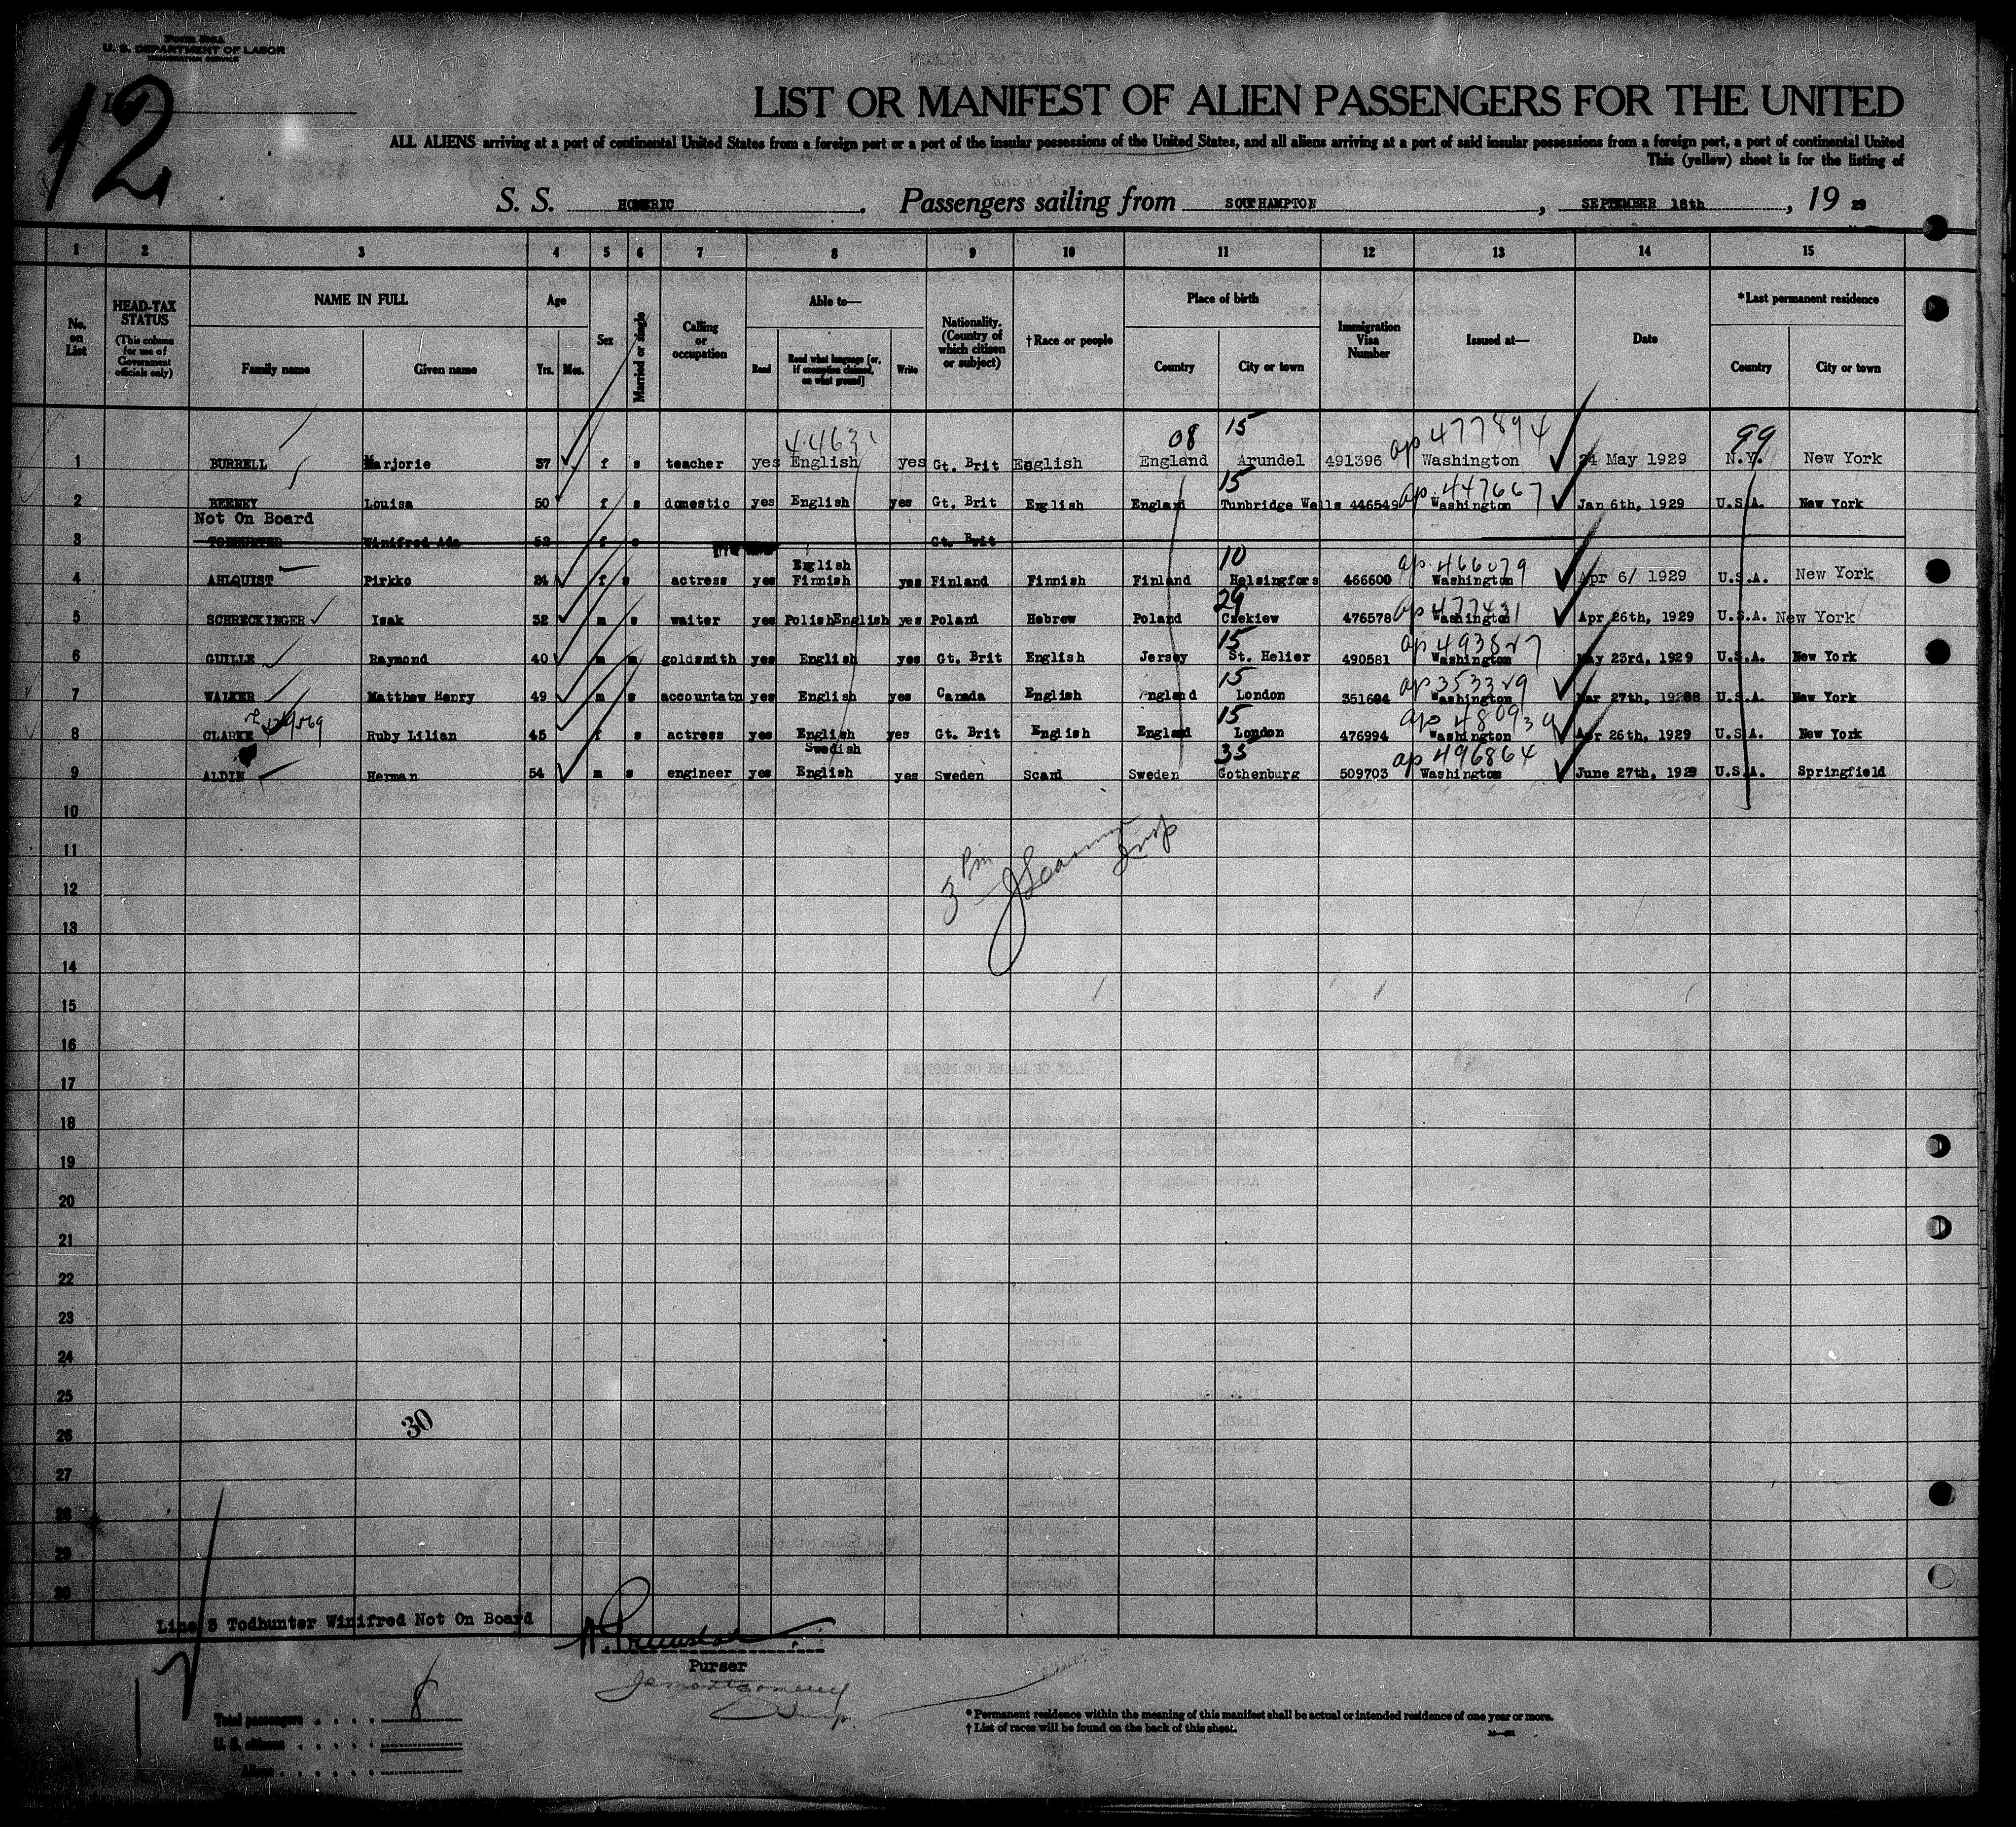 Form 500A
U. S. DEPARTMENT OF LABOR
IMMIGRATION SERVICE
12
LIST OR MANIFEST OF ALIEN PASSENGERS FOR THE UNITED
ALL ALIENS arriving at a port of continental United States from a foreign port or a port of the insular possessions of the United States, and all aliens arriving at a port of said insular possessions from a foreign port, a port of continental United
This (yellow) sheet is for the listing of
S. S. HOMERIC . Passengers sailing from SOUTHAMPTON , SEPTEMBER 18th , 19 29
1 2 3 4 5 6 7 8 9 10 11 12 13 14 15
No. on List HEAD-TAX STATUS (This column for use of Government officials only) NAME IN FULL Family name Given name Age Yrs. Mos. Sex Married or single Calling or occupation Able to— Read Read what language [or, if exemption claimed, on what ground] Write Nationality. (Country of which citizen or subject) †Race or people Place of birth Country City or town Immigration Visa Number Issued at— Date *Last permanent residence Country City or town
08 15 ap 477894 99
1 BURRELL Marjorie 37 f s teacher yes English yes Gt. Brit English England Arundel 491396 Washington 24 May 1929 N.Y. New York
15 ap 447667
2 BERNEY Louisa 50 f s domestic yes English yes Gt. Brit English England Tunbridge Wells 446549 Washington Jan 6th, 1929 U.S.A. New York
Not On Board
3 TODHUNTER Winifred Ada 52 f s Gt. Brit
English 10 ap 466079
4 AHLQUIST Pirkko 24 f s actress yes Finnish yes Finland Finnish Finland Helsingfors 466600 Washington Apr 6/ 1929 U.S.A. New York
29 ap 477431
5 SCHRECKINGER Isak 32 m s waiter yes Polish English yes Poland Hebrew Poland Czekiew 476578 Washington Apr 26th, 1929 U.S.A. New York
15 ap 493827
6 GUILLE Raymond 40 m m goldsmith yes English yes Gt. Brit English Jersey St. Helier 490581 Washington May 23rd, 1929 U.S.A. New York
15 ap 353329
7 WALKER Matthew Henry 49 m s accountatn yes English yes Canada English England London 351694 Washington Mar 27th, U.S.A. New York
15 ap
8 CLARKE Ruby Lilian 45 f s actress yes English yes Gt. Brit English England London 476994 Washington Apr 26th, 1929 U.S.A. New York
Swedish 35 ap 496864
9 ALDIN Herman 54 m s engineer yes English yes Sweden Scand Sweden Gothenburg 509703 Washington June 27th, 1929 U.S.A. Springfield
10
11
12
3 Pm Insp
13
14
15
16
17
18
19
20
21
22
23
24
25
26
30
27
28
29
30
Line 3 Todhunter Winifred Not On Board
Purser
JAMontgomery
Insp.
Total passengers . . . . 8
U. S. citizens . . . . .
Aliens . . . . . .
* Permanent residence within the meaning of this manifest shall be actual or intended residence of one year or more.
† List of races will be found on the back of this sheet.